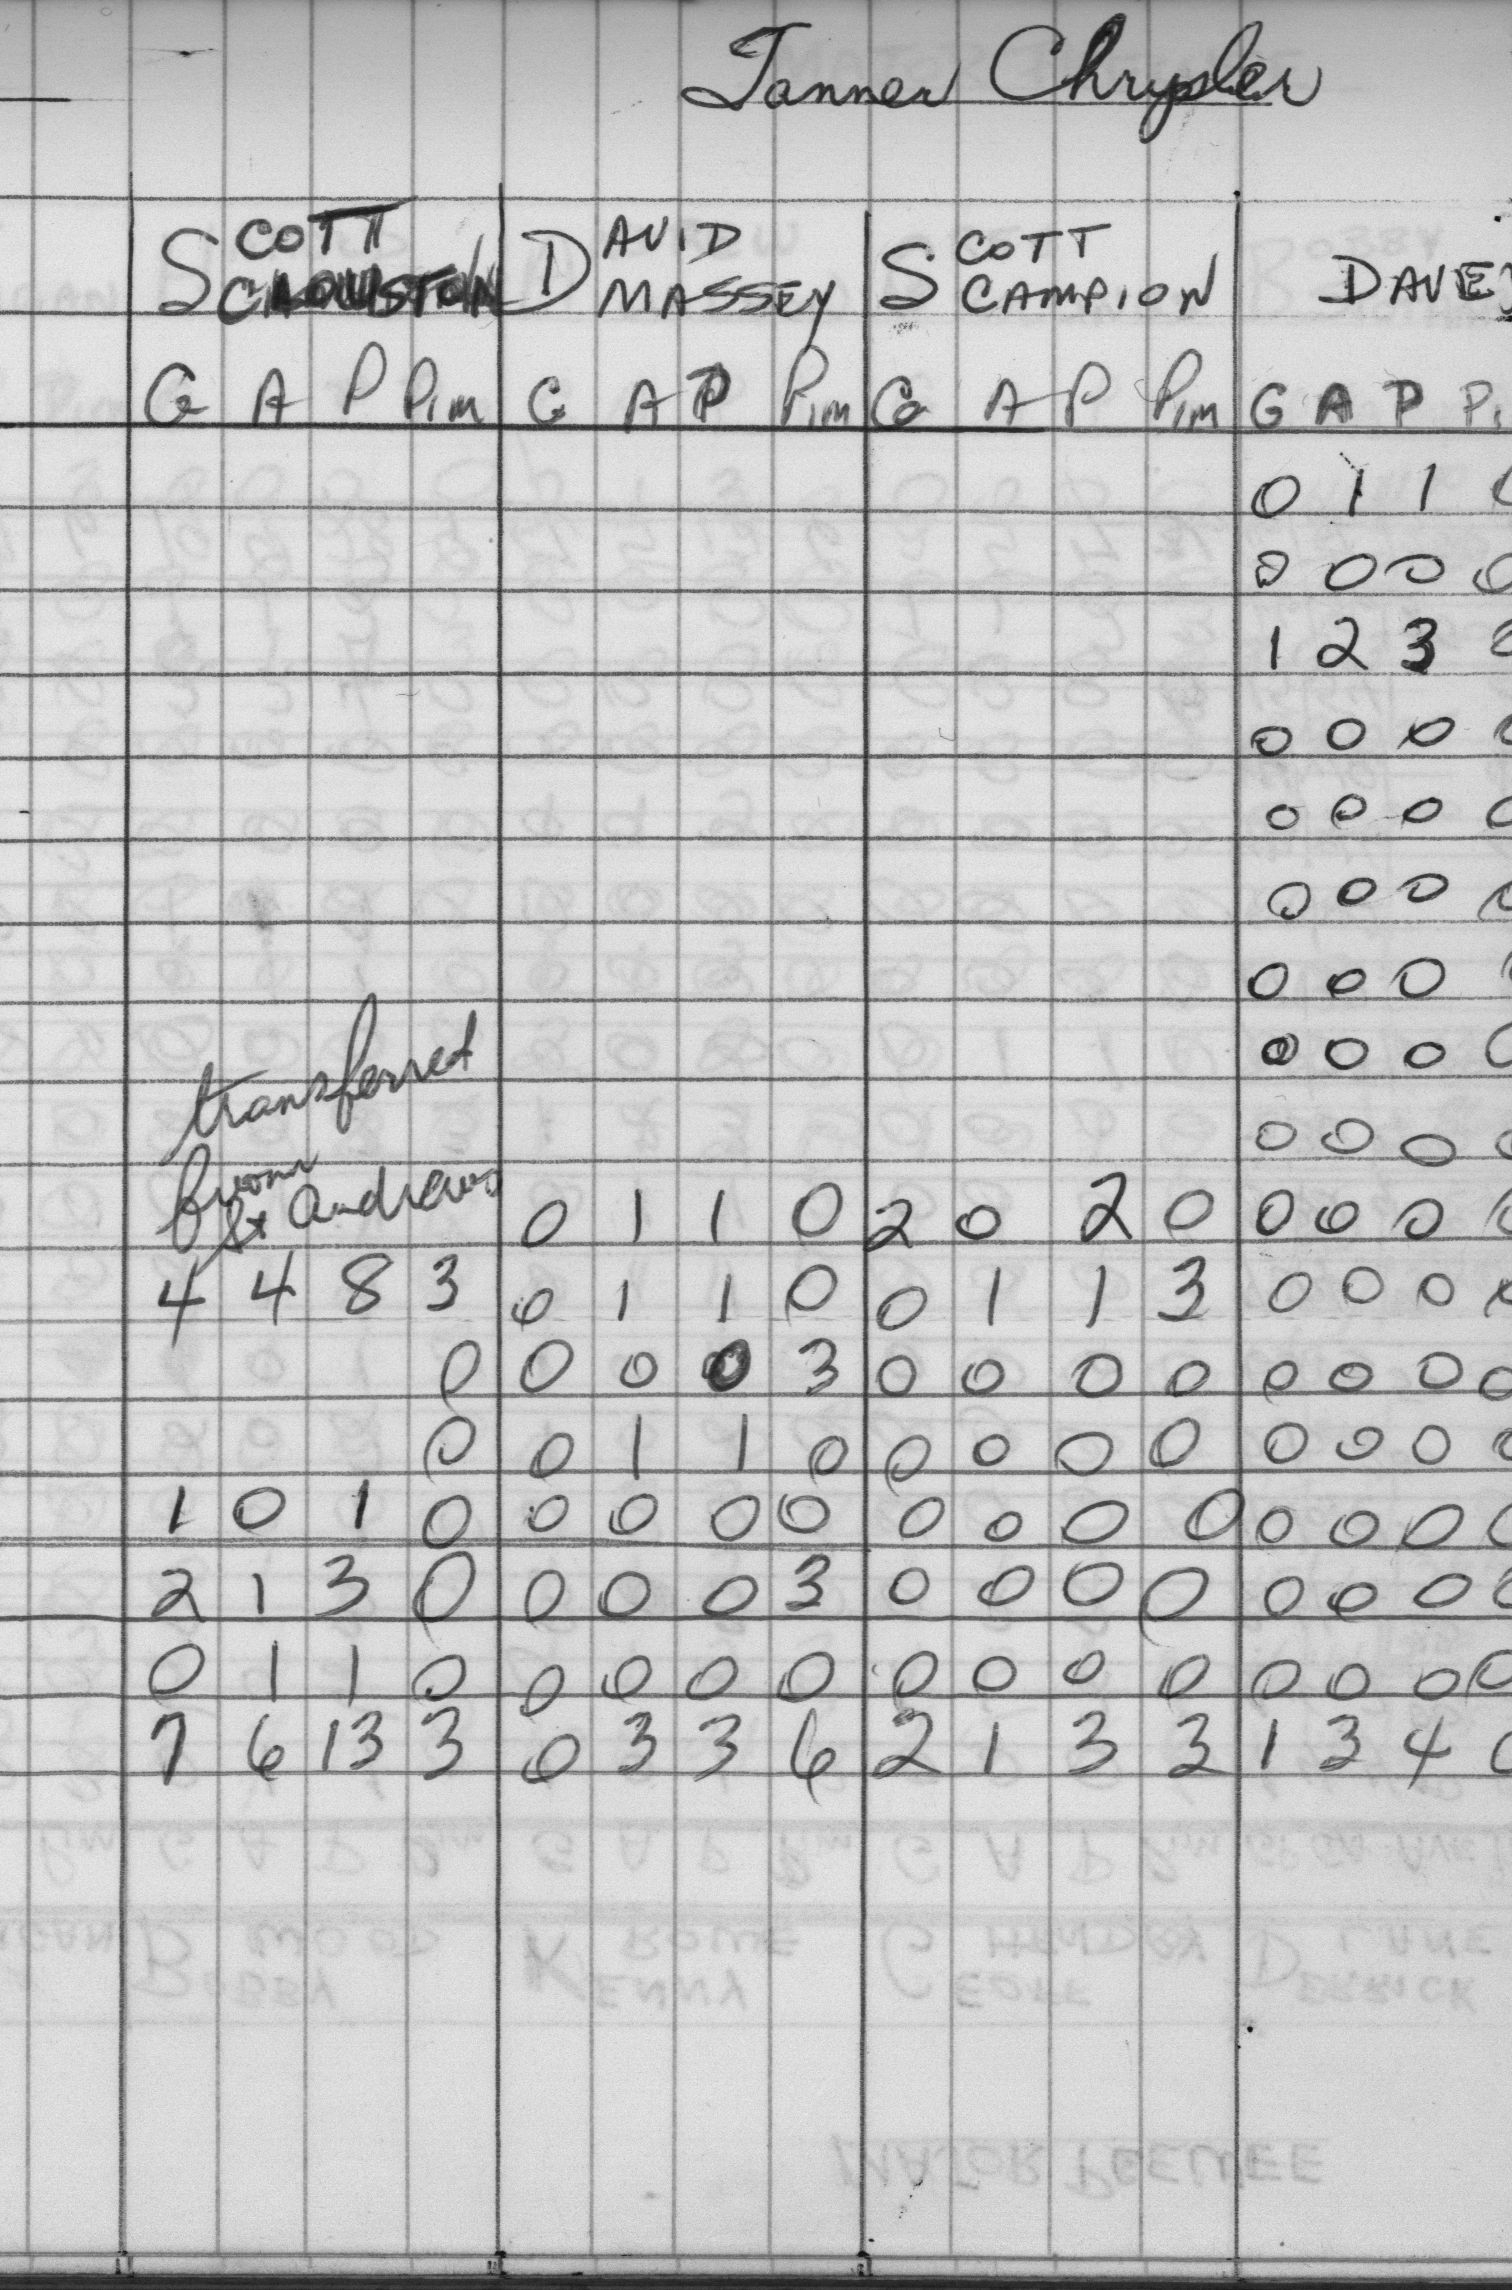 Tanner Chrysler
SCOTT DAVID SCOTT
MASSEY CAMPION DAVE
G A P Pim G A P Pim G A P Pim G A P
0 1 1
0 0 0 0
1 2 3
0 0 0
0 0 0
0 0 0
0 0 0
0 0 0
transferred
0 0 0
from
St Andrews 0 1 1 0 2 0 2 0 0 0 0
4 4 8 3 0 1 1 0 0 1 1 3 0 0 0
0 0 0 0 3 0 0 0 0 0 0 0 0
0 0 1 1 0 0 0 0 0 0 0 0
1 0 1 0 0 0 0 0 0 0 0 0 0 0 0
2 1 3 0 0 0 0 3 0 0 0 0 0 0 0
0 1 1 0 0 0 0 0 0 0 0 0 0 0 0 0
7 6 13 3 0 3 3 6 2 1 3 3 1 3 4